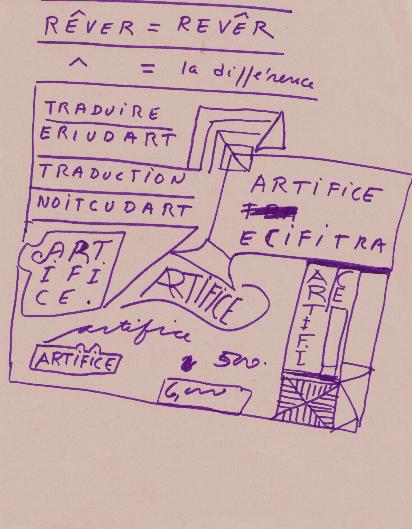 RÊVER = REVÊR
^ = la différence
TRADUIRE
ERIUDART
TRADUCTION
NOITCUDART
ARTIFICE
ECIFITRA
ART
IFI
CE.
ARTIFICE
artifice
ARTIFICE
500.
6,000
ARTIFI
CE